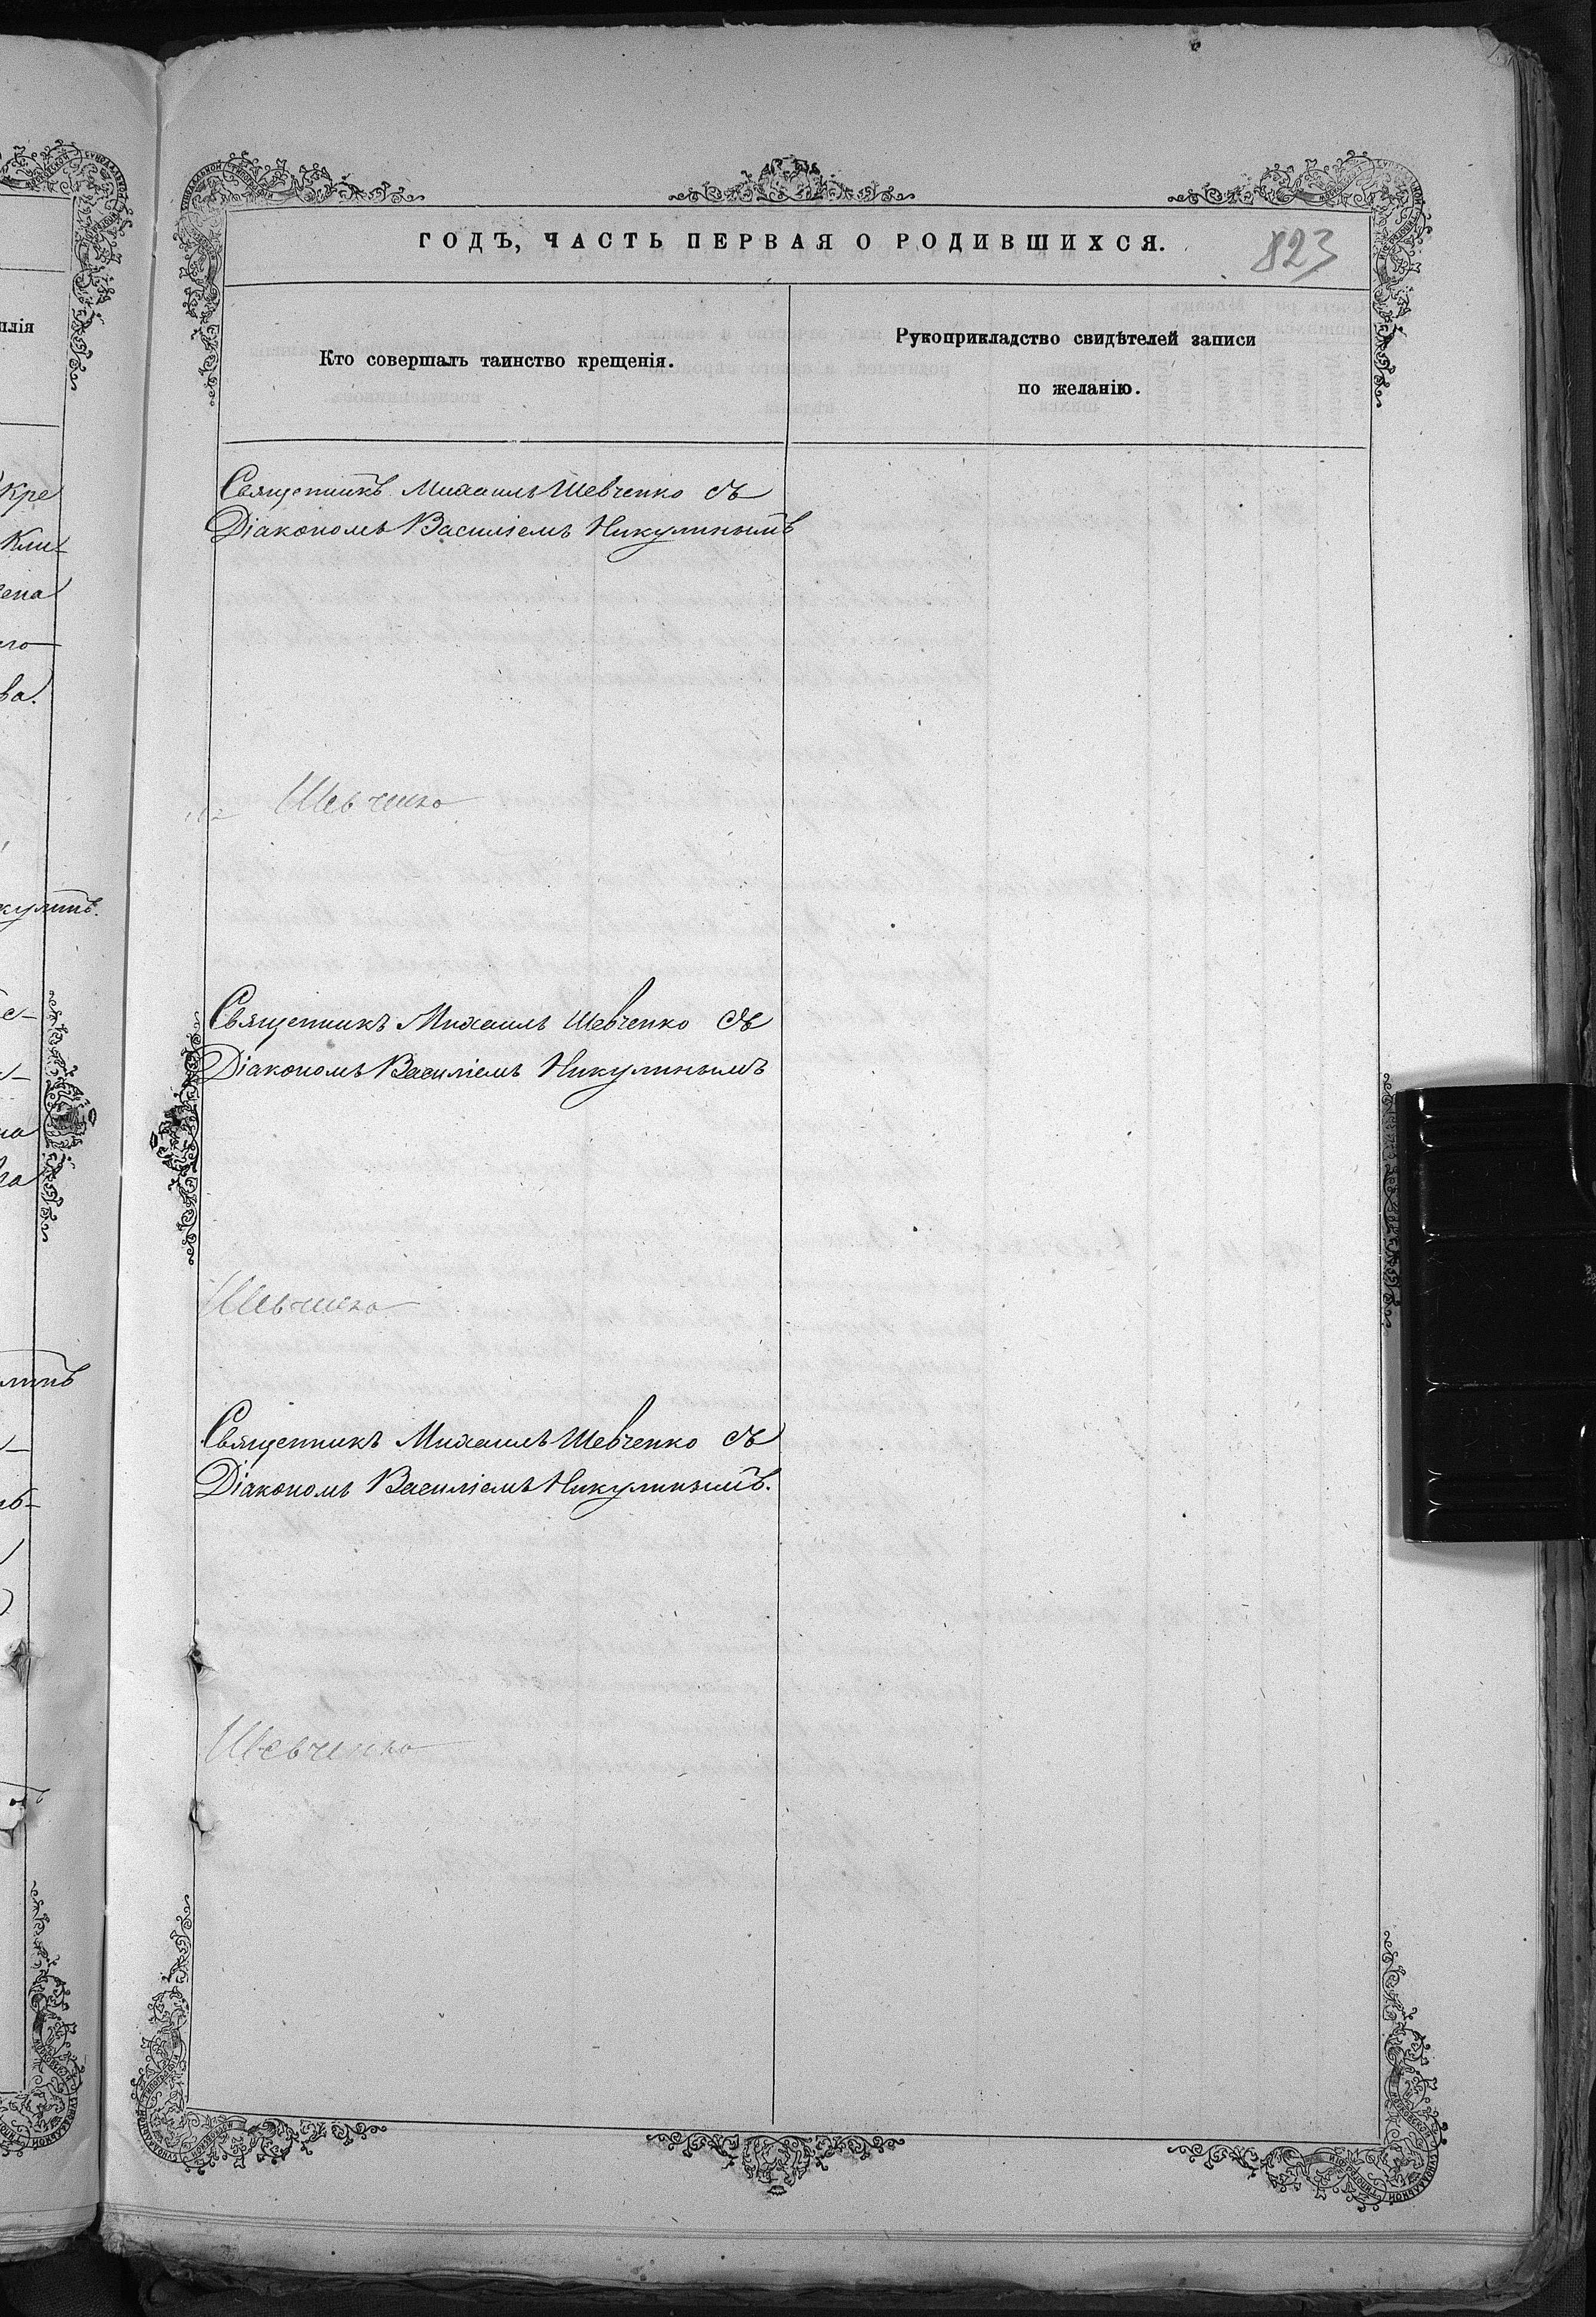 ГОДЪ, ЧАСТЬ ПЕРВАЯ О РОДИВШИХСЯ.
823
Кто совершалъ таинство крещенія.
Рукоприкладство свидѣтелей записи
по желанію.
Священникъ Михаилъ Шевченко съ
Діакономъ Василіемъ Никулинымъ
Шевченко
Священникъ Михаилъ Шевченко съ
Діакономъ Василіемъ Никулинымъ
Шевченко
Священникъ Михаилъ Шевченко съ
Діакономъ Василіемъ Никулинымъ.
Шевченко